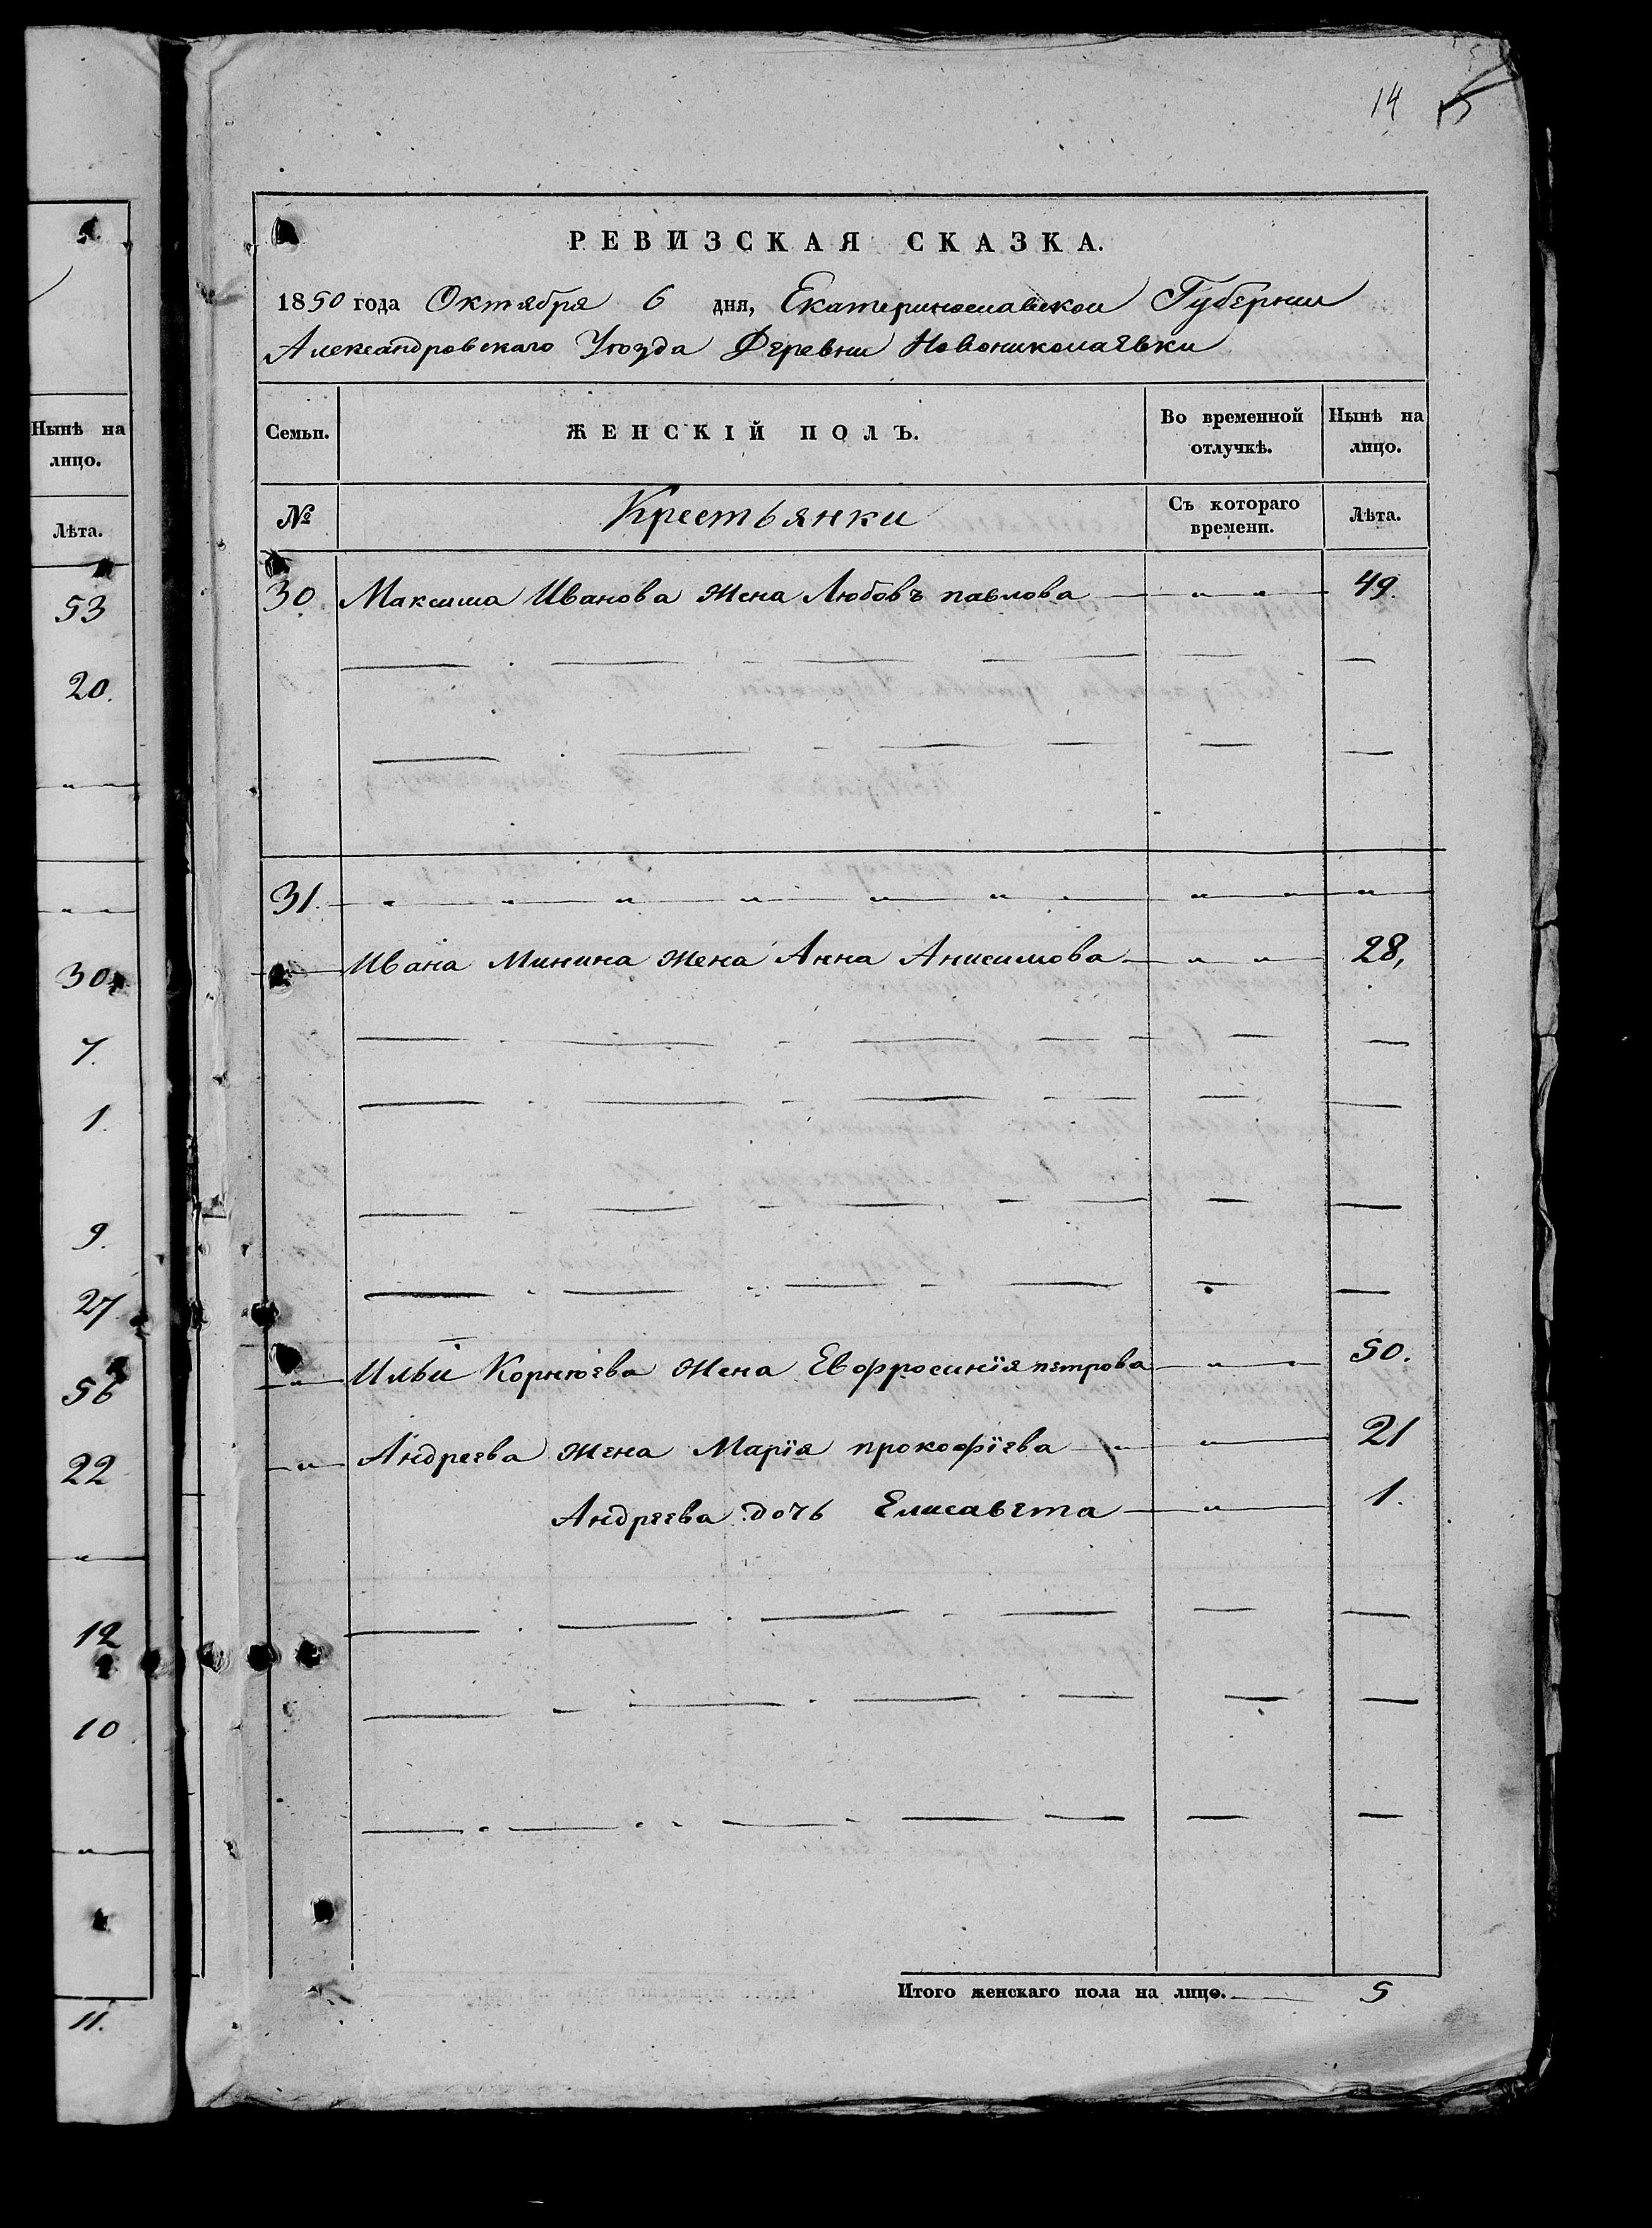 14
Нынѣ на
лицо.
Лѣта.
53
20.
30
7.
1
9.
27
56
22
12
10
11.
РЕВИЗСКАЯ СКАЗКА.
1850 года Октября 6 дня, Екатеринославской Губернии
Александровскаго Уѣзда Деревни Новониколаевки
Семьи. ЖЕНСКІЙ ПОЛЪ. Во временной отлучкѣ. Нынѣ на лицо.
№ Крестьянки Съ котораго времени. Лѣта.
30 Максима Иванова жена Любовъ павлова — " " — 49.
31. " " " " " " " " "
Ивана Минина жена Анна Анисимова — " " — 28,
" Ильи Корнюева жена Евфросинія петрова — " — 50.
" Андреева жена Марія прокофіева — " " — 21
Андреева дочь Елисавета — " — 1.
Итого женскаго пола на лицо. 5